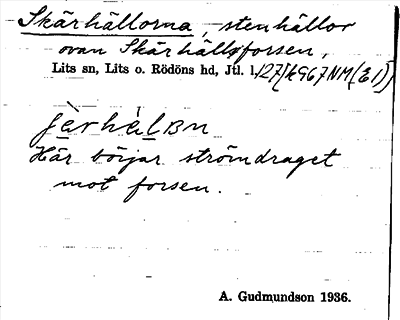 Skärhällorna, stenhällor
ovan Skärhällsforsen,
Lits sn, Lits o. Rödöns hd, Jtl. l.
Här börjar strömdraget
mot forsen.
A. Gudmundson 1936.